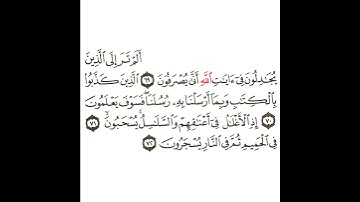 أَلَمْ تَرَ إِلَى ٱلَّذِينَ
يُجَٰدِلُونَ فِىٓ ءَايَٰتِ ٱللَّهِ أَنَّىٰ يُصْرَفُونَ ٦٩ ٱلَّذِينَ كَذَّبُوا۟
بِٱلْكِتَٰبِ وَبِمَآ أَرْسَلْنَا بِهِۦ رُسُلَنَا ۖ فَسَوْفَ يَعْلَمُونَ
٧٠ إِذِ ٱلْأَغْلَٰلُ فِىٓ أَعْنَٰقِهِمْ وَٱلسَّلَٰسِلُ يُسْحَبُونَ ٧١
فِى ٱلْحَمِيمِ ثُمَّ فِى ٱلنَّارِ يُسْجَرُونَ ٧٢